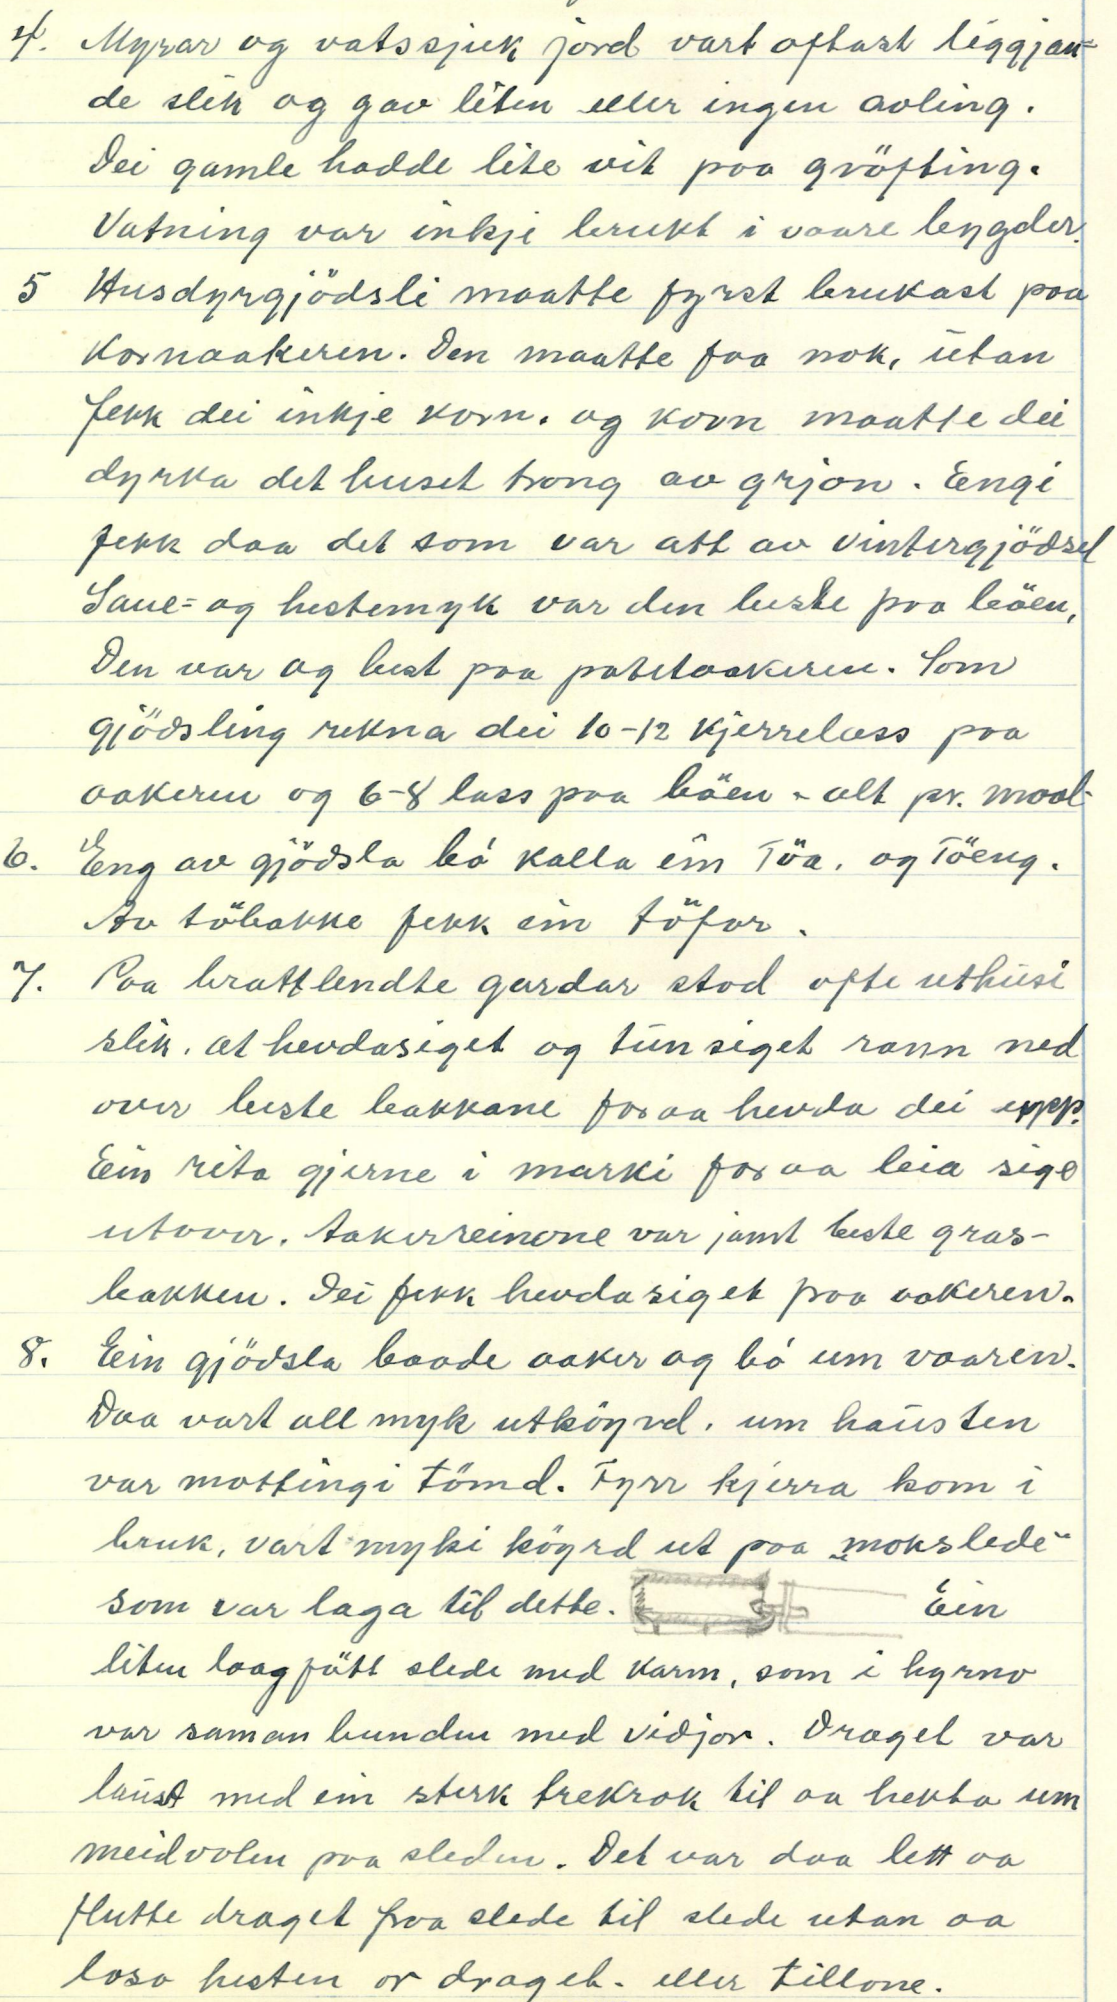 4. Myrar og vatssjuk jord vart oftast liggjan=
de slik og gav liten eller ingen avling.
Dei gamle hadde lite vit paa gröfting.
Vatning var inkje brukt i vaare bygder.
5 Husdyrgjödsli maatte fyrst brukast paa
kornaakeren. Den maatte faa nok, utan
fekk dei inkje korn. og korn maatte dei
dyrka det huset trong av grjon. Engi
fekk daa det som var att av vintergjödsel
Saue= og hestemyk var den beste paa böen,
Den var og best paa potetaakeren. Som
gjödsling rekna dei 10-12 kjerrelass paa
aakeren og 6-8 lass paa böen - alt pr. maal
6. Eng av gjödsla bö kalla ein Töa. og Töeng.
Av töbakke fekk ein töfor.
7. Paa brattlendte gardar stod ofte uthusi
slik. at hevdasiget og tunsiget rann ned
over beste bakkane for aa hevda dei upp.
Ein rita gjerne i marki for aa leia sige
utover. Aakerreinone var jamt beste gras-
bakken. Dei fekk hevdasiget paa aakeren.
8. Ein gjödsla baade aaker og bö um vaaren.
Daa vart all myk utköyrd. um hausten
var mottingi tömd. Fyrr kjerra kom i
bruk, vart myki köyrd ut paa „mokslede“
som var laga til dette. Ein
liten laagfött slede med karm, som i hyrno
var saman bunden med vidjor. Draget var
laust med ein sterk trekrok til aa hekta um
meidvolen paa sleden. Det var daa lett aa
flutte draget fraa slede til slede utan aa
losa hesten or draget. eller tillone.